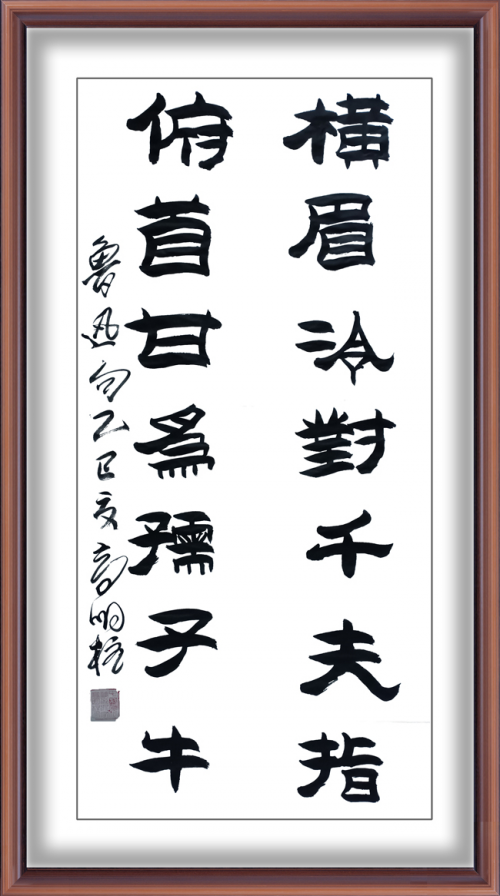 橫眉冷對千夫指
俯首甘爲孺子牛
魯迅句乙巳夏高明